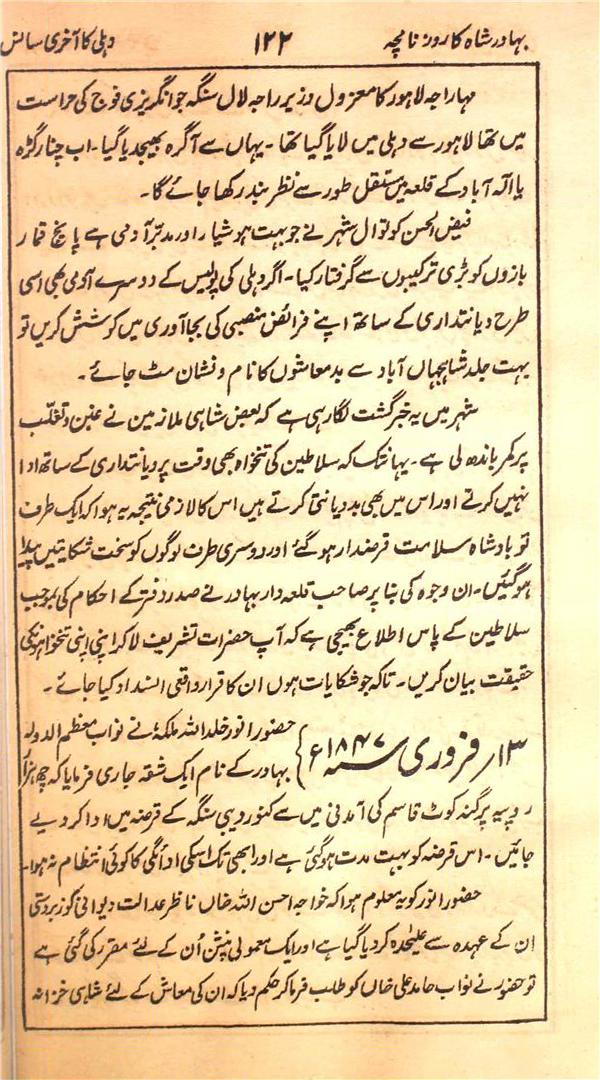 بہادر شاہ کا روزنامچہ ۱۲۲ دہلی کا آخری سانس
مہاراجہ لاہور کا معزول وزیر راجہ لال سنگہ جو انگریزی فوج کی حراست
میں تھا لاہور سے دہلی میں لایا گیا تھا۔ یہاں سے آگرہ بھیجدیا گیا۔ اب چنار گڑہ
یا الہ آباد کے قلعہ میں مستقل طور سے نظر بند رکھا جائے گا۔
فیض الحسن کوتوال شہر نے جو بہت ہوشیار اور مدبّر آدمی ہے پانچ قمار
بازوں کو بڑی ترکیبوں سے گرفتار کیا۔ اگر دہلی کی پولیس کے دوسرے آدمی بھی اسی
طرح دیانتداری کے ساتھ اپنے فرائض منصبی کی بجا آوری میں کوشش کریں تو
بہت جلد شاہجہاں آباد سے بدمعاشوں کا نام و نشان مٹ جائے۔
شہر میں یہ خبر گشت لگا رہی ہے کہ بعض شاہی ملازمین نے غبن و تغلّب
پر کمر باندھ لی ہے۔ یہانتک کہ سلاطین کی تنخواہ بھی وقت پر دیانتداری کے ساتھ ادا
نہیں کرتے اور اس میں بھی بددیانتی کرتے ہیں اس کا لازمی نتیجہ یہ ہوا کہ ایک طرف
تو بادشاہ سلامت قرضدار ہو گئے اور دوسری طرف لوگوں کو سخت شکایتیں پیدا
ہو گئیں۔ ان وجوہ کی بنا پر صاحب قلعہ دار بہادر نے صدر دفتر کے احکام کی بموجب
سلاطین کے پاس اطلاع بھیجی ہے کہ آپ حضرات تشریف لا کر اپنی اپنی تنخواہونکی
حقیقت بیان کریں۔ تاکہ جو شکایات ہوں ان کا قرار واقعی انسداد کیا جائے۔
۱۳/ فروری سنہ ۱۸۴۷ء } حضور انور خلد اللہ ملکہٗ نے نواب معظم الدولہ
بہادر کے نام ایک شقہ جاری فرمایا کہ چھ ہزار
روپیہ پرگنہ کوٹ قاسم کی آمدنی میں سے کنور دیبی سنگہ کے قرضہ میں ادا کر دیے
جائیں۔ اس قرضہ کو بہت مدت ہو گئی ہے اور ابھی تک اسکی ادائگی کا کوئی انتظام نہ ہوا۔
حضور انور کو یہ معلوم ہوا کہ خواجہ احسن اللہ خاں ناظر عدالت دیوانی کو زبردستی
ان کے عہدہ سے علیٰحدہ کر دیا گیا ہے اور ایک معمولی پنشن اُن کے لئے مقرر کی گئی ہے
تو حضور نے نواب حامد علی خاں کو طلب فرما کر حکم دیا کہ ان کی معاش کے لئے شاہی خزانہ